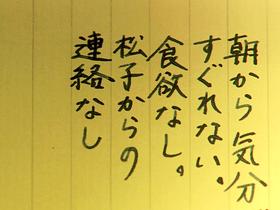 朝から気分
すぐれない。
食欲なし。
松子からの
連絡なし